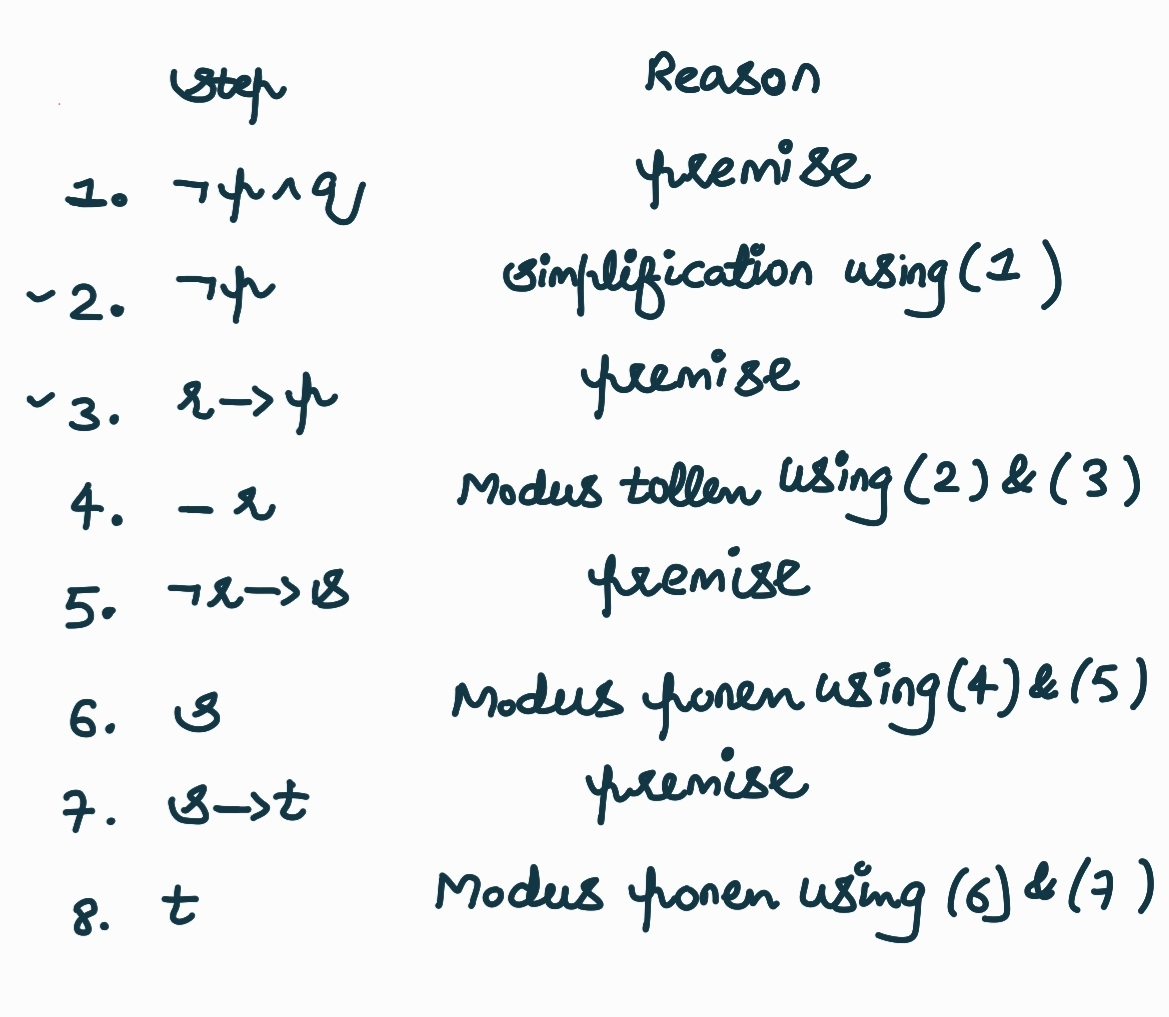 step Reason
1. ¬p∧q premise
2. ¬p simplification using (1)
3. r→p premise
4. – r Modus tollen using (2) & (3)
5. ¬r→s premise
6. s Modus ponen using (4) & (5)
7. s→t premise
8. t Modus ponen using (6) & (7)